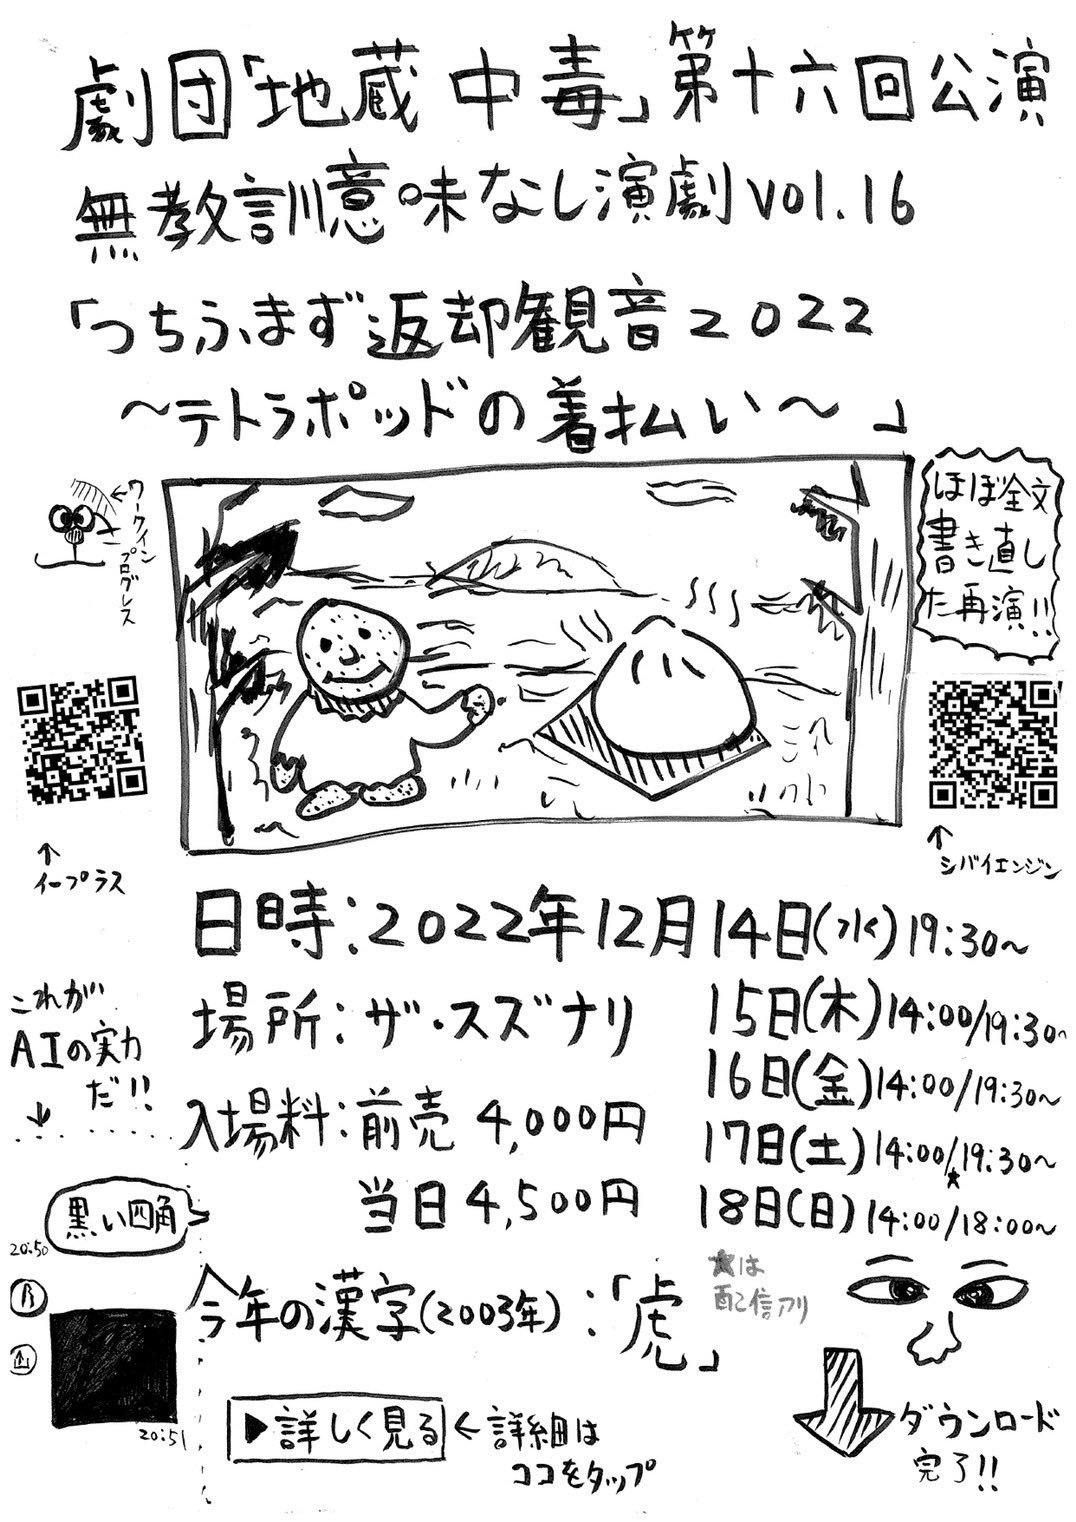 劇団「地蔵中毒」第十六回公演
無教訓意味なし演劇vol.16
「つちふまず返却観音2022
～テトラポッドの着払い～」
ワークイン
プログレス
ほぼ全文
書き直し
た再演!!
↑
イープラス
↑
シバイエンジン
日時:2022年12月14日(水)19:30~
15日(木)14:00/19:30~
16日(金)14:00/19:30~
17日(土)14:00/19:30~
★
18日(日)14:00/18:00~
★は
配信アリ
場所:ザ・スズナリ
入場料:前売 4,000円
当日4,500円
これが
AIの実力
だ!!
↓
黒い四角
20:50
20:51
今年の漢字(2003年):「虎」
▶詳しく見る
←詳細は
ココをタップ
ダウンロード
完了!!